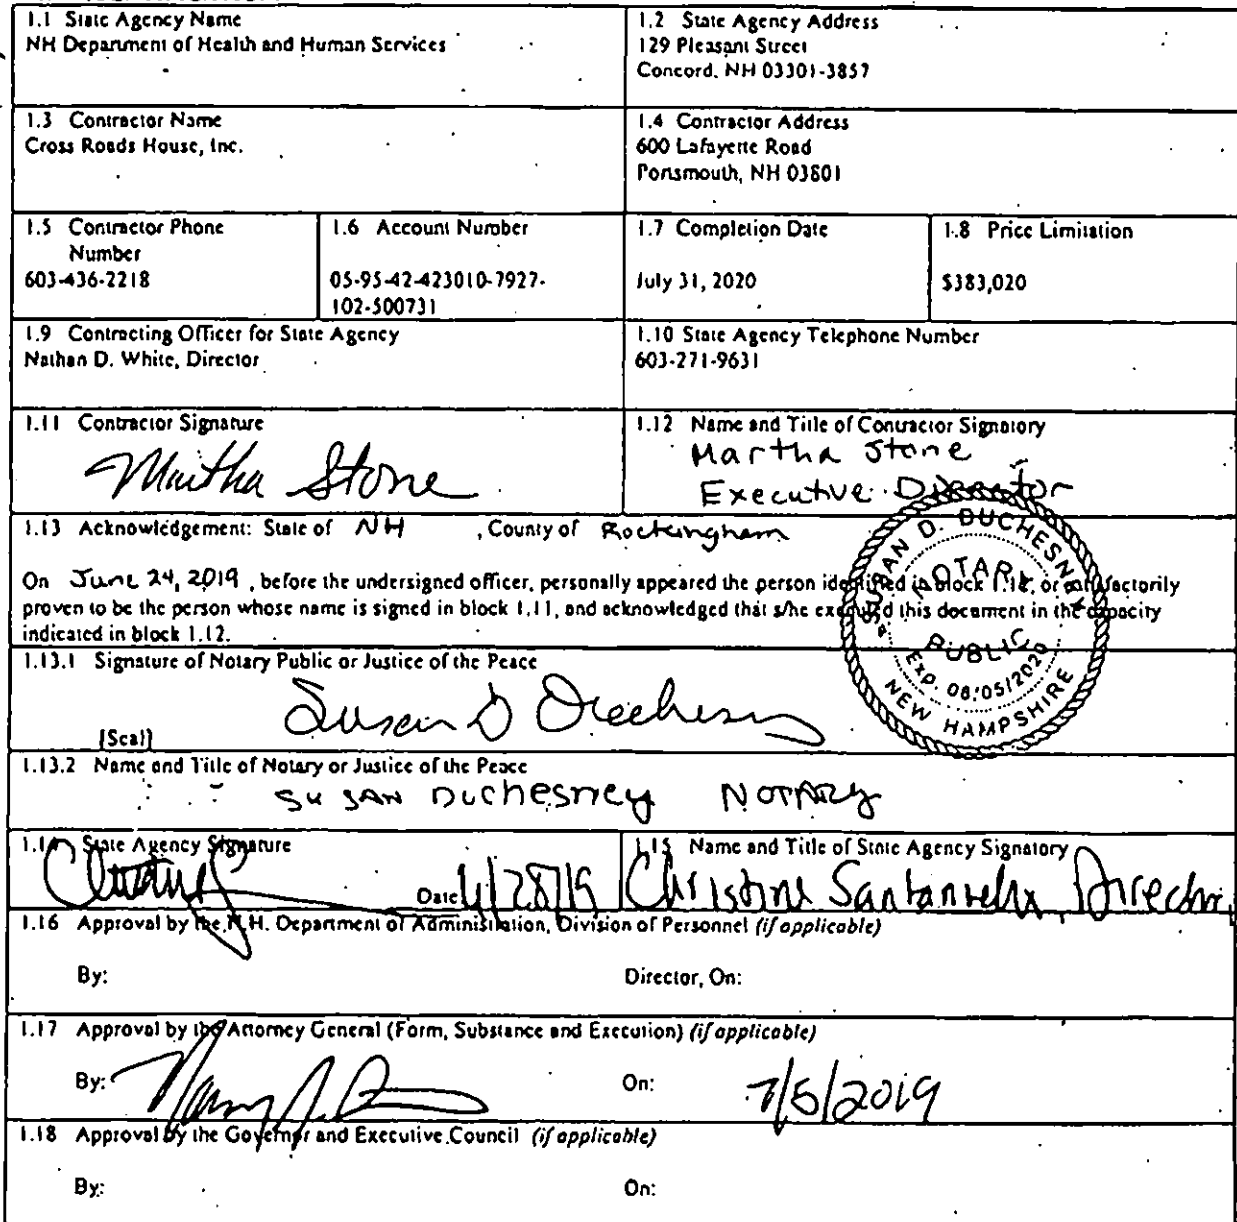 1.1 State Agency Name
NH Department of Health and Human Services
1.2 State Agency Address
129 Pleasant Street
Concord, NH 03301-3857
1.3 Contractor Name
Cross Roads House, Inc.
1.4 Contractor Address
600 Lafayette Road
Portsmouth, NH 03801
1.5 Contractor Phone
Number
603-436-2218
1.6 Account Number
05-95-42-423010-7927-
102-500731
1.7 Completion Date
July 31, 2020
1.8 Price Limitation
$383,020
1.9 Contracting Officer for State Agency
Nathan D. White, Director
1.10 State Agency Telephone Number
603-271-9631
1.11 Contractor Signature
Martha Stone
1.12 Name and Title of Contractor Signatory
Martha Stone
Executive Director
1.13 Acknowledgement: State of NH , County of Rockingham
On June 24, 2019 , before the undersigned officer, personally appeared the person identified in block 1.12, or satisfactorily
proven to be the person whose name is signed in block 1.11, and acknowledged that s/he executed this document in the capacity
indicated in block 1.12.
SUSAN D. DUCHESNEY
NOTARY
PUBLIC
Exp. 08/05/2020
NEW HAMPSHIRE
1.13.1 Signature of Notary Public or Justice of the Peace
Susan D Duchesney
[Seal]
1.13.2 Name and Title of Notary or Justice of the Peace
SUSAN Duchesney NOTARY
1.14 State Agency Signature
Date
1.15 Name and Title of State Agency Signatory
Christine Santaniello, Director
1.16 Approval by the N.H. Department of Administration, Division of Personnel (if applicable)
By: Director, On:
1.17 Approval by the Attorney General (Form, Substance and Execution) (if applicable)
By: On: 7/5/2019
1.18 Approval by the Governor and Executive Council (if applicable)
By: On: